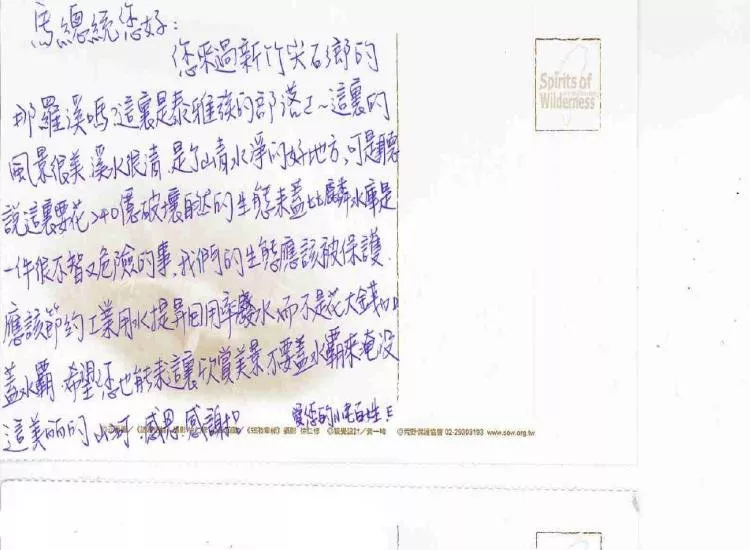 馬總統您好：
您來過新竹尖石鄉的
那羅溪嗎？這裏是泰雅族的部落ㄛ～這裏的
風景很美溪水很清，是個山青水淨的好地方，可是聽
說這裏要花240億破壞自然的生態來蓋比麟水庫是
一件很不智又危險的事，我們的生態應該被保護
應該節約工業用水提昇回用率廢水而不是花大錢
蓋水霸，希望您也能來這裏欣賞美景不要蓋水霸來淹沒
這美丽的山河．感恩．感謝 愛您的小老百姓
Spirits of
Wilderness
攝影 徐仁修 ◎視覺設計／黃一峰 ◎荒野保護協會 02-29303193 www.sow.org.tw